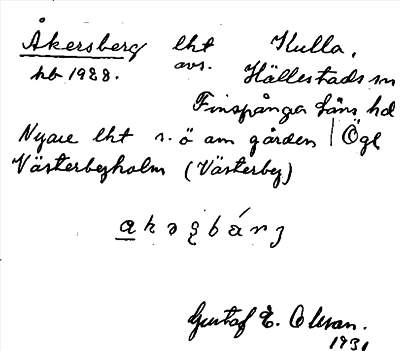 Åkersberg lht Kulla,
hb 1928. avs. Hällestads sn
Finspånga läns hd
Nyare lht s.ö om gården | Ögl
Västerbyholm (Västerby)
Gustaf E. Olsson.
1931